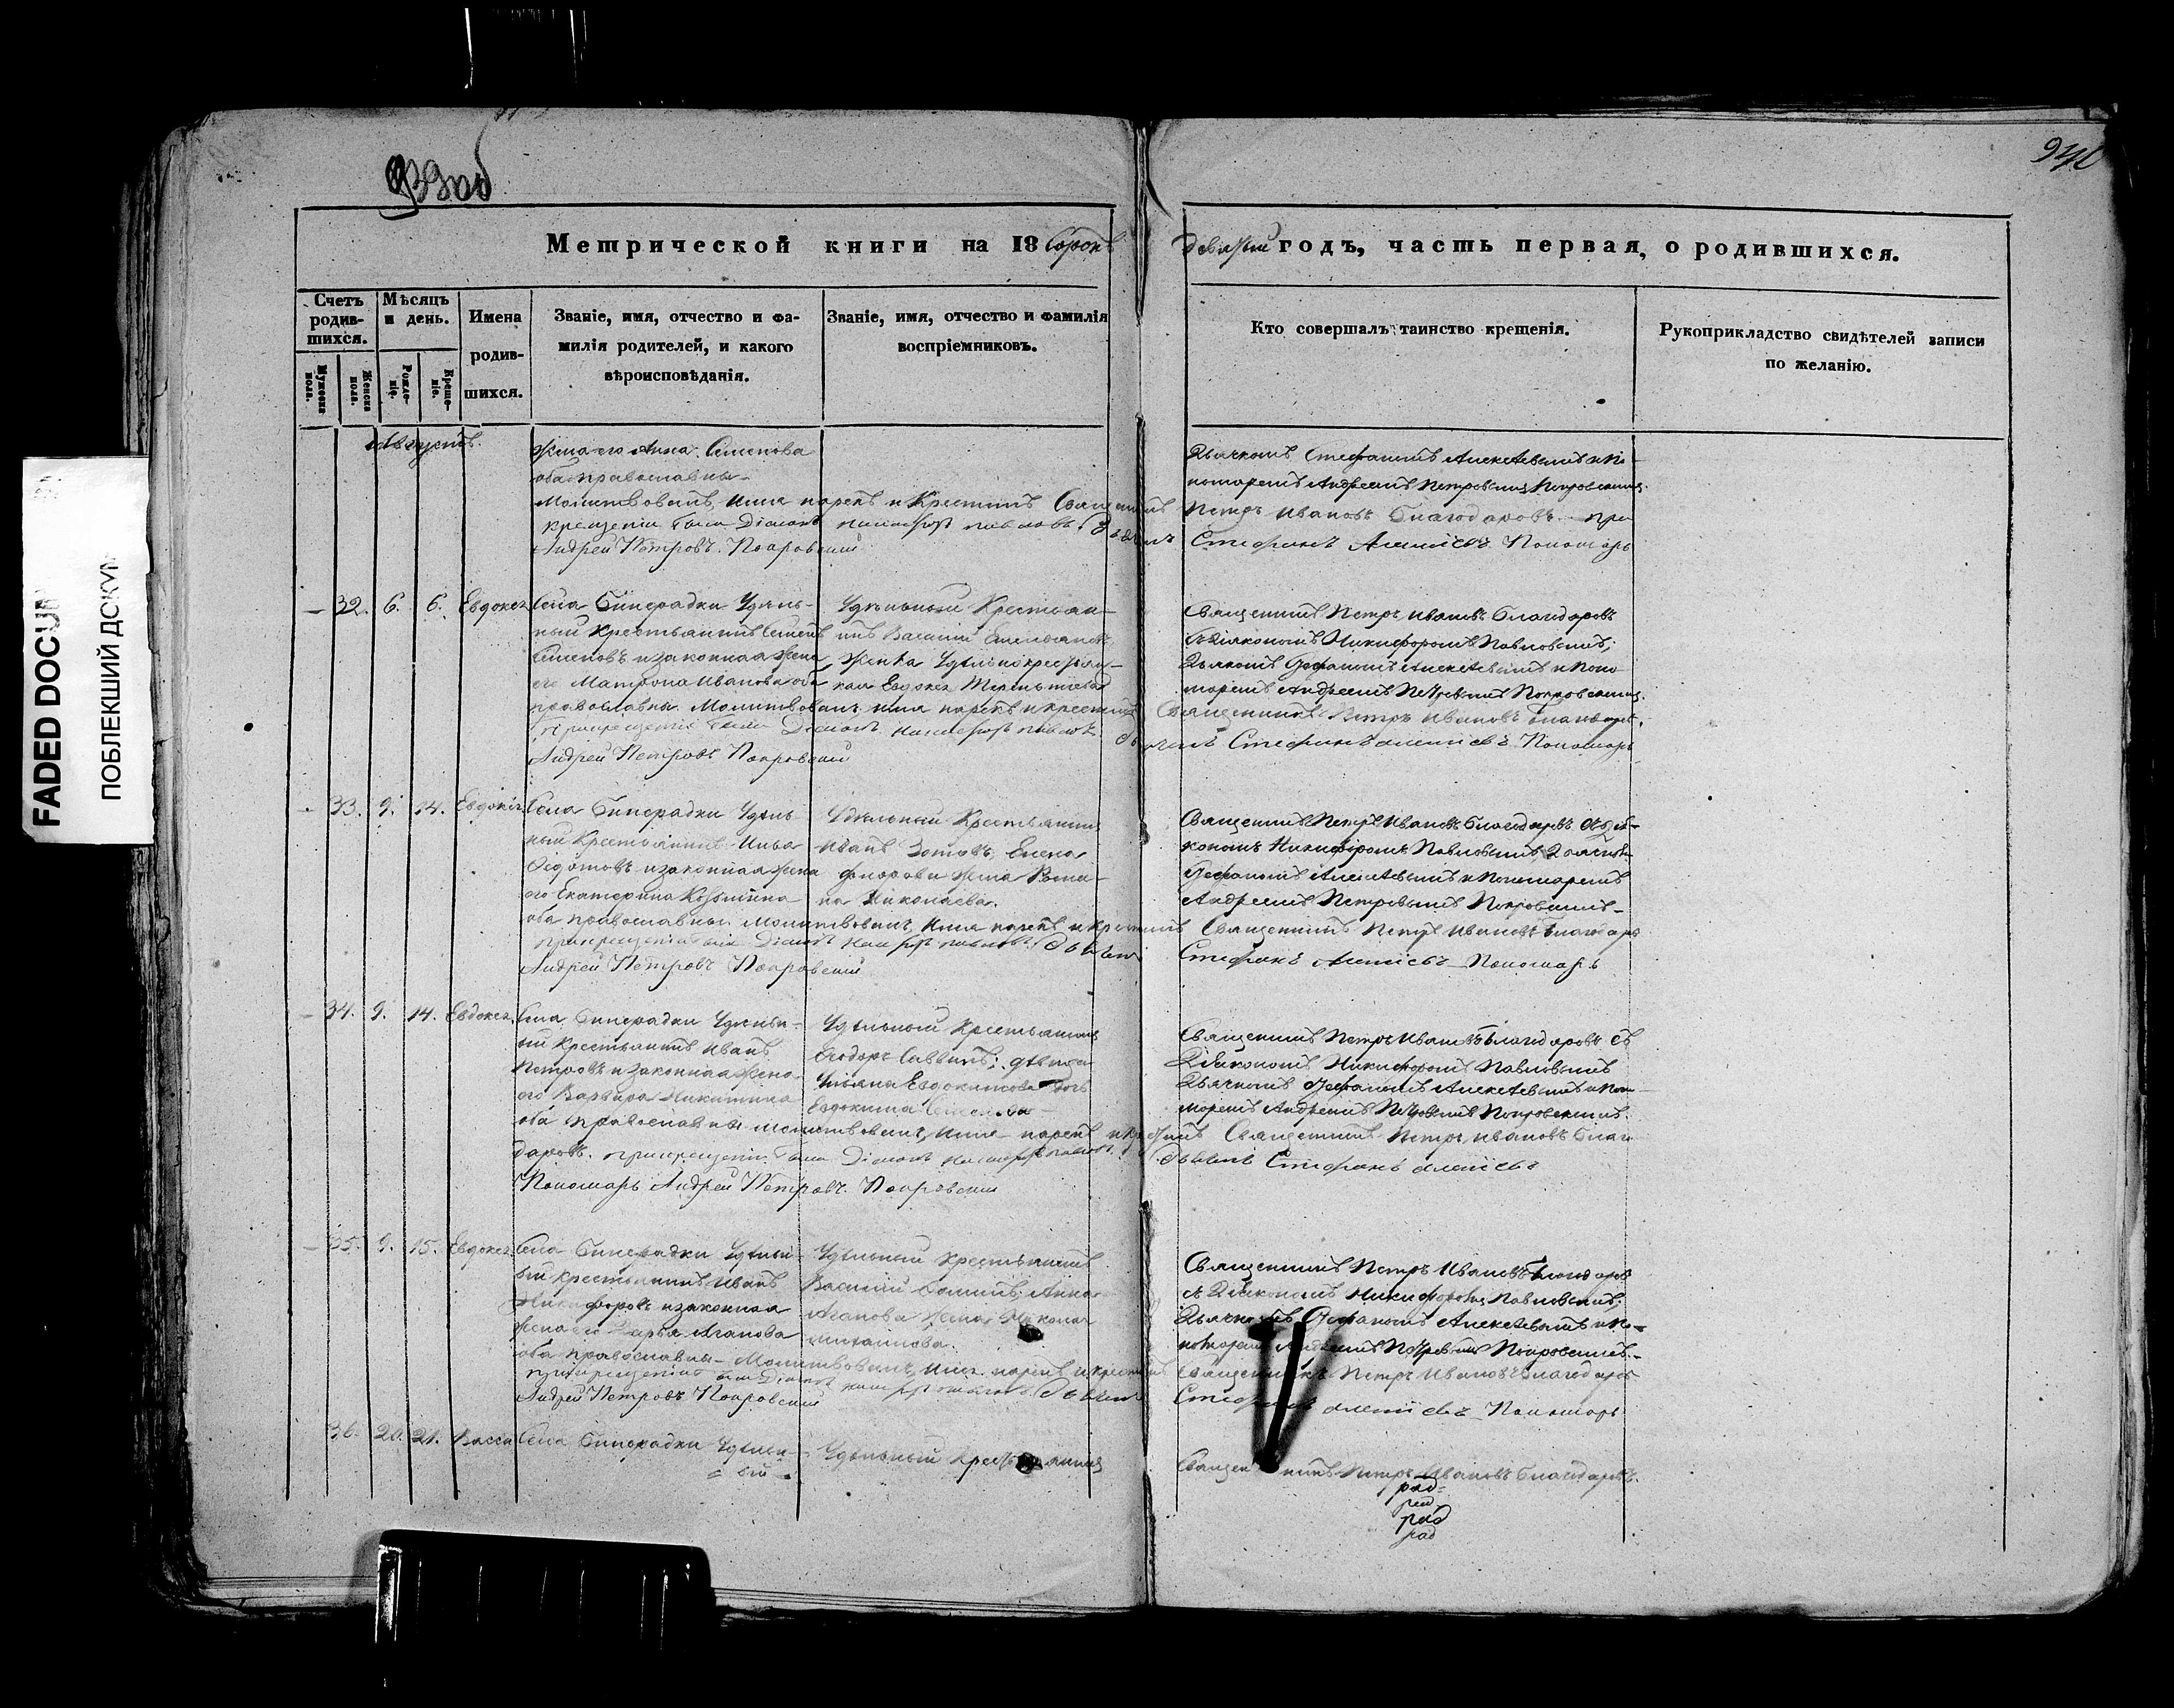 939 об
940
Метрической книги на 18 Сорокъ
девятый годъ, часть первая, о родившихся.
Счетъ родив-
шихся.
Мужеска пола.
Женска пола.
Мѣсяцъ
и день.
Рожде-
ніе.
Креще-
ніе.
Имена
родив-
шихся.
Званіе, имя, отчество и фа-
милія родителей, и какого
вѣроисповѣданія.
Званіе, имя, отчество и фамилія
воспріемниковъ.
Кто совершалъ таинство крещенія.
Рукоприкладство свидѣтелей записи
по желанію.
Августъ.
жена его Анна Семенова
оба православны
Молитвовалъ, имя нарекъ и Крестилъ Священникъ Петръ Ивановъ Благодаровъ при
крещеніи были Діаконъ Павловъ Дьячекъ Стефанъ Алексіевъ Пономарь
Андрей Петровъ Покровскій
Дьячкомъ Стефаномъ Алексѣевымъ и По-
номаремъ Андреемъ Петровымъ Покровскимъ.
32. 6. 6. Евдокея
Села Бинарадки Удѣль-
ный Крестьянинъ Семенъ
Семеновъ и законная жена
его Матрона Иванова оба
православны. Молитвовалъ имя нарекъ и крестилъ Священникъ Петръ Ивановъ Благодаровъ.
При крещеніи были Діаконъ Павловъ Дьячекъ Стефанъ Алексіевъ Пономарь
Андрей Петровъ Покровскій
Удѣльный Крестьян-
инъ Василій Емельяновъ
Женка Удѣльнокрестьян-
кая Евдокея Терентьева
Священникъ Петръ Ивановъ Благодаровъ
съ Діакономъ Никифоромъ Павловымъ;
Дьячкомъ Стефаномъ Алексѣевымъ и Поно-
маремъ Андреемъ Петровымъ Покровскимъ.
33. 9. 14. Евдокія
Села Бинарадки Удѣль-
ный Крестьянинъ
Федотовъ и законная жена
его Екатерина Козьмина
оба православны. Молитвовалъ, Имя нарекъ и крестилъ Священникъ Петръ Ивановъ Благодаровъ
при крещеніи были Діаконъ Павловъ Дьячекъ Стефанъ Алексіевъ Пономарь
Андрей Петровъ Покровскій
Удѣльный Крестьянинъ
Иванъ Зотовъ, Елена
жена Рома-
на Николаева.
Священникъ Петръ Ивановъ Благодаровъ съ Діа-
кономъ Никифоромъ Павловымъ, Дьячкомъ
Стефаномъ Алексѣевымъ и Пономаремъ
Андреемъ Петровымъ Покровскимъ
34. 9. 14. Евдокея.
Села Бинарадки Удѣльн-
ый Крестьянинъ Иванъ
Петровъ и законная жена
его Варвара Никитина
оба православны молитвовалъ, Имя нарекъ и крестилъ Священникъ Петръ Ивановъ Благо-
даровъ. при крещеніи были Діаконъ Дьячекъ Стефанъ Алексіевъ
Пономарь Андрей Петровъ Покровскій
Удѣльный Крестьянинъ
Ѳеодоръ Саввинъ; дѣвица
Ульяна Евдокимова дочь
Евдокима
Священникъ Петръ Ивановъ Благодаровъ съ
Діакономъ Никифоромъ Павловымъ
Дьячкомъ Стефаномъ Алексѣевымъ и Поно-
маремъ Андреемъ Петровымъ Покровскимъ.
35. 9. 15. Евдокея
Села Бинарадки Удѣльн-
ый Крестьянинъ Иванъ
Никифоровъ и законная
жена его Дарья Агапова
оба православны Молитвовалъ, Имя нарекъ и крестилъ Священникъ Петръ Ивановъ Благодаровъ
При крещеніи были Діаконъ Дьячекъ Стефанъ Алексіевъ Пономарь
Андрей Петровъ Покровскій
Удѣльный Крестьянинъ
Василій Анна
Агапова Жена Николая
Михайлова.
Священникъ Петръ Ивановъ Благодаровъ
съ Діакономъ Никифоромъ Павловымъ;
Дьячкомъ Стефаномъ Алексѣевымъ и По-
номаремъ Андреемъ Петровымъ Покровскимъ.
36. 20. 21. Васса
Села Бинарадки Удѣльн-
ый
Удѣльный Крестьянинъ
Священникъ Петръ Ивановъ Благодаровъ.
FADED DOCUM
ПОБЛЕКШИЙ ДОКУМ